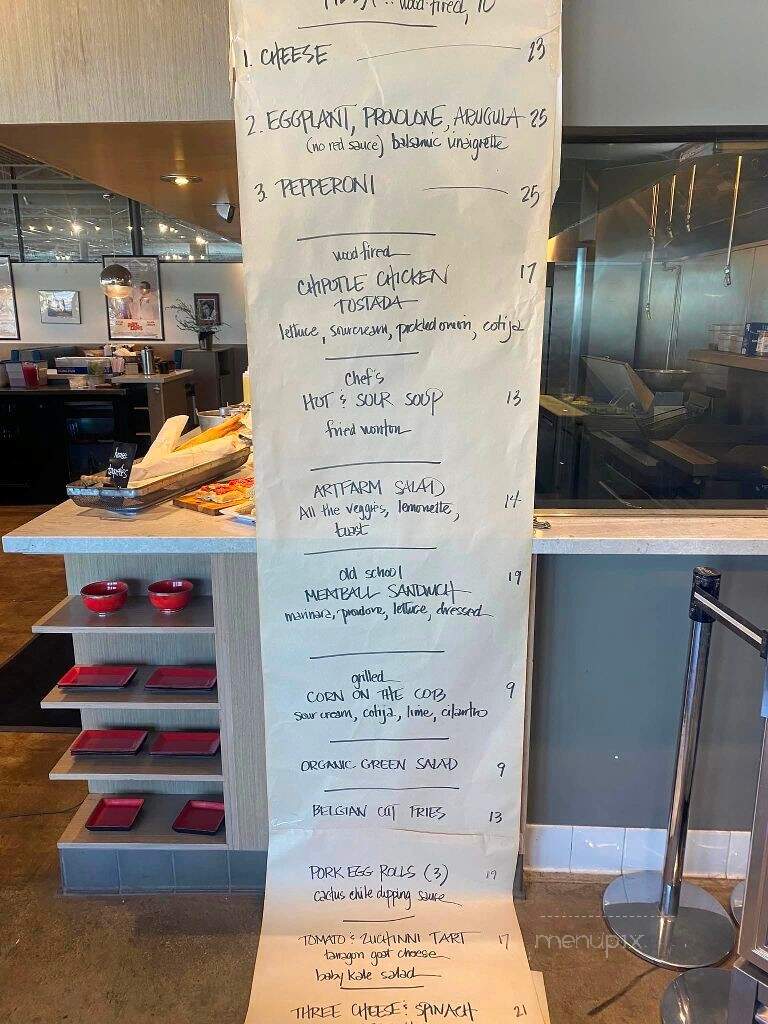 wood-fired, 10
1. CHEESE 23
2. EGGPLANT, PROVOLONE, ARUGULA 25
(no red sauce) balsamic vinaigrette
3. PEPPERONI 25
wood-fired
CHIPOTLE CHICKEN 17
TOSTADA
lettuce, sourcream, pickled onion, cotija
chef's
HOT & SOUR SOUP 13
fried wonton
ARTFARM SALAD
All the veggies, lemonette, 14
toast
old school
MEATBALL SANDWICH 19
marinara, provolone, lettuce, dressed
grilled
CORN ON THE COB 9
sour cream, cotija, lime, cilantro
ORGANIC GREEN SALAD 9
BELGIAN CUT FRIES 13
PORK EGG ROLLS (3) 19
cactus chile dipping sauce
TOMATO & ZUCHINNI TART 17
tarragon goat cheese
baby kale salad
THREE CHEESE & SPINACH 21
menupix